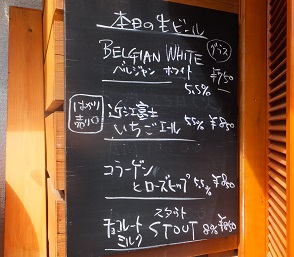 本日の生ビール
BELGIAN WHITE グラス
ベルジャン ホワイト ¥750
5.5%
はかり売り○
近江富士
いちごエール 5.5% ¥850
コラーゲン
とローズヒップ 5.5% ¥850
スタウト
チョコレート
ミルク STOUT 8% ¥850